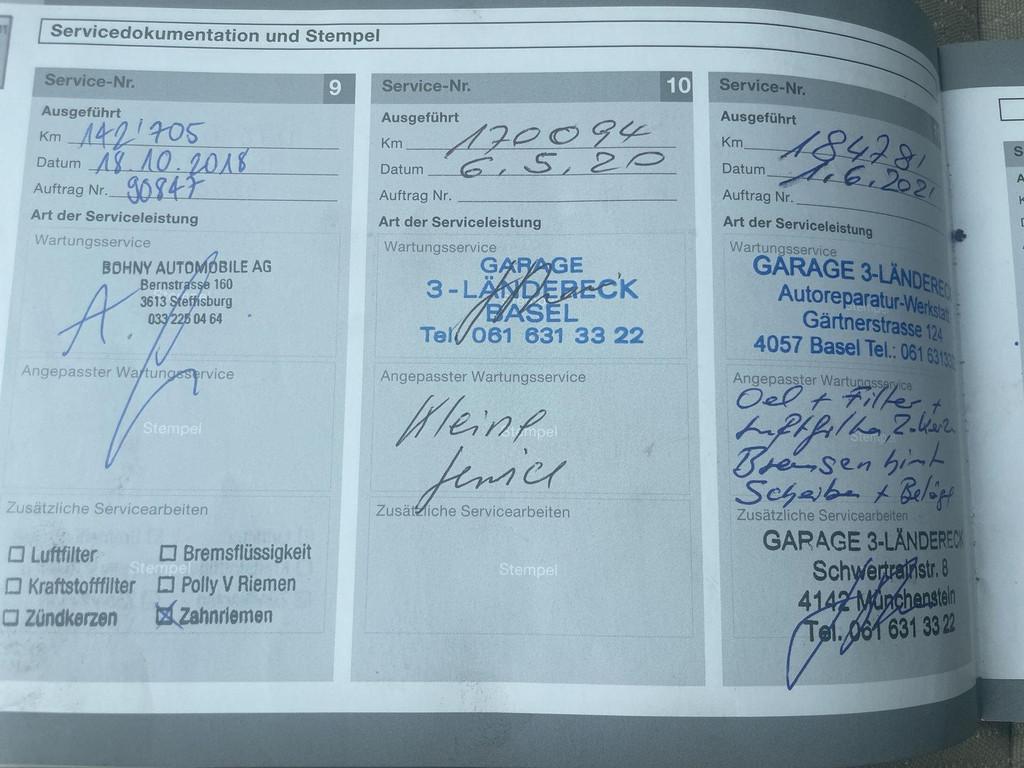 Servicedokumentation und Stempel
Service-Nr. 9
Ausgeführt
Km 142'705
Datum 18.10.2018
Auftrag Nr. 90847
Art der Serviceleistung
Wartungsservice
BOHNY AUTOMOBILE AG
Bernstrasse 160
3613 Steffisburg
033 225 04 64
Angepasster Wartungsservice
Stempel
Zusätzliche Servicearbeiten
Luftfilter
Bremsflüssigkeit
Stempel
Kraftstofffilter
Polly V Riemen
Zündkerzen
Zahnriemen
Service-Nr. 10
Ausgeführt
Km 170094
Datum 6.5.20
Auftrag Nr.
Art der Serviceleistung
Wartungsservice
GARAGE
3-LÄNDERECK
BASEL
Tel. 061 631 33 22
Angepasster Wartungsservice
Kleine
Stempel
Service
Zusätzliche Servicearbeiten
Stempel
Service-Nr.
Ausgeführt
Km 184781
Datum 1.6.2021
Auftrag Nr.
Art der Serviceleistung
Wartungsservice
GARAGE 3-LÄNDEREC
Autoreparatur-Werkstat
Gärtnerstrasse 124
4057 Basel Tel.: 061 631
Angepasster Wartungsservice
Oel + Filter +
Luftfilter
Stempel
Bremsen hint
Scheiben + Beläge
Zusätzliche Servicearbeiten
GARAGE 3-LÄNDERECK
Schwertrainstr. 8
4142 Münchenstein
Tel. 061 631 33 22